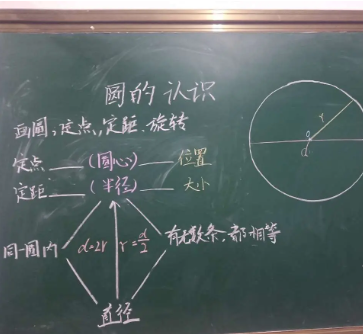 圆的认识
画圆:定点,定距.旋转
定点——(圆心)——位置
定距——(半径)——大小
同一圆内 d=2r r=d/2 有无数条,都相等
直径
r
o
d